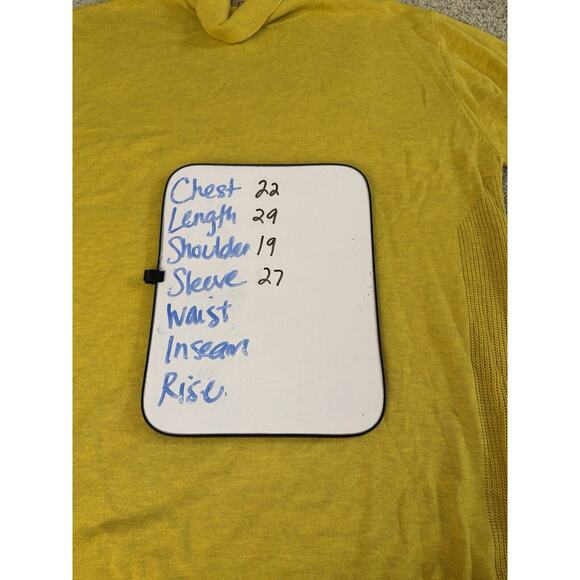 Chest 22
Length 29
Shoulder 19
Sleeve 27
Waist
Inseam
Rise